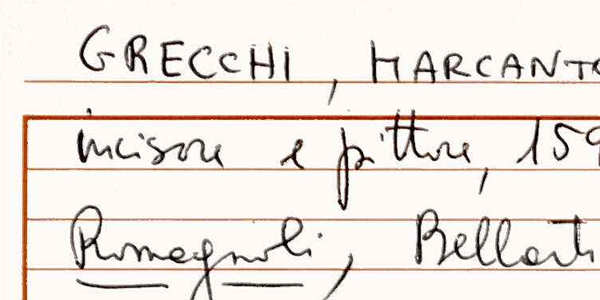 GRECCHI, MARCANTO
incisore e pittore, 159
Romagnoli, Bellarti